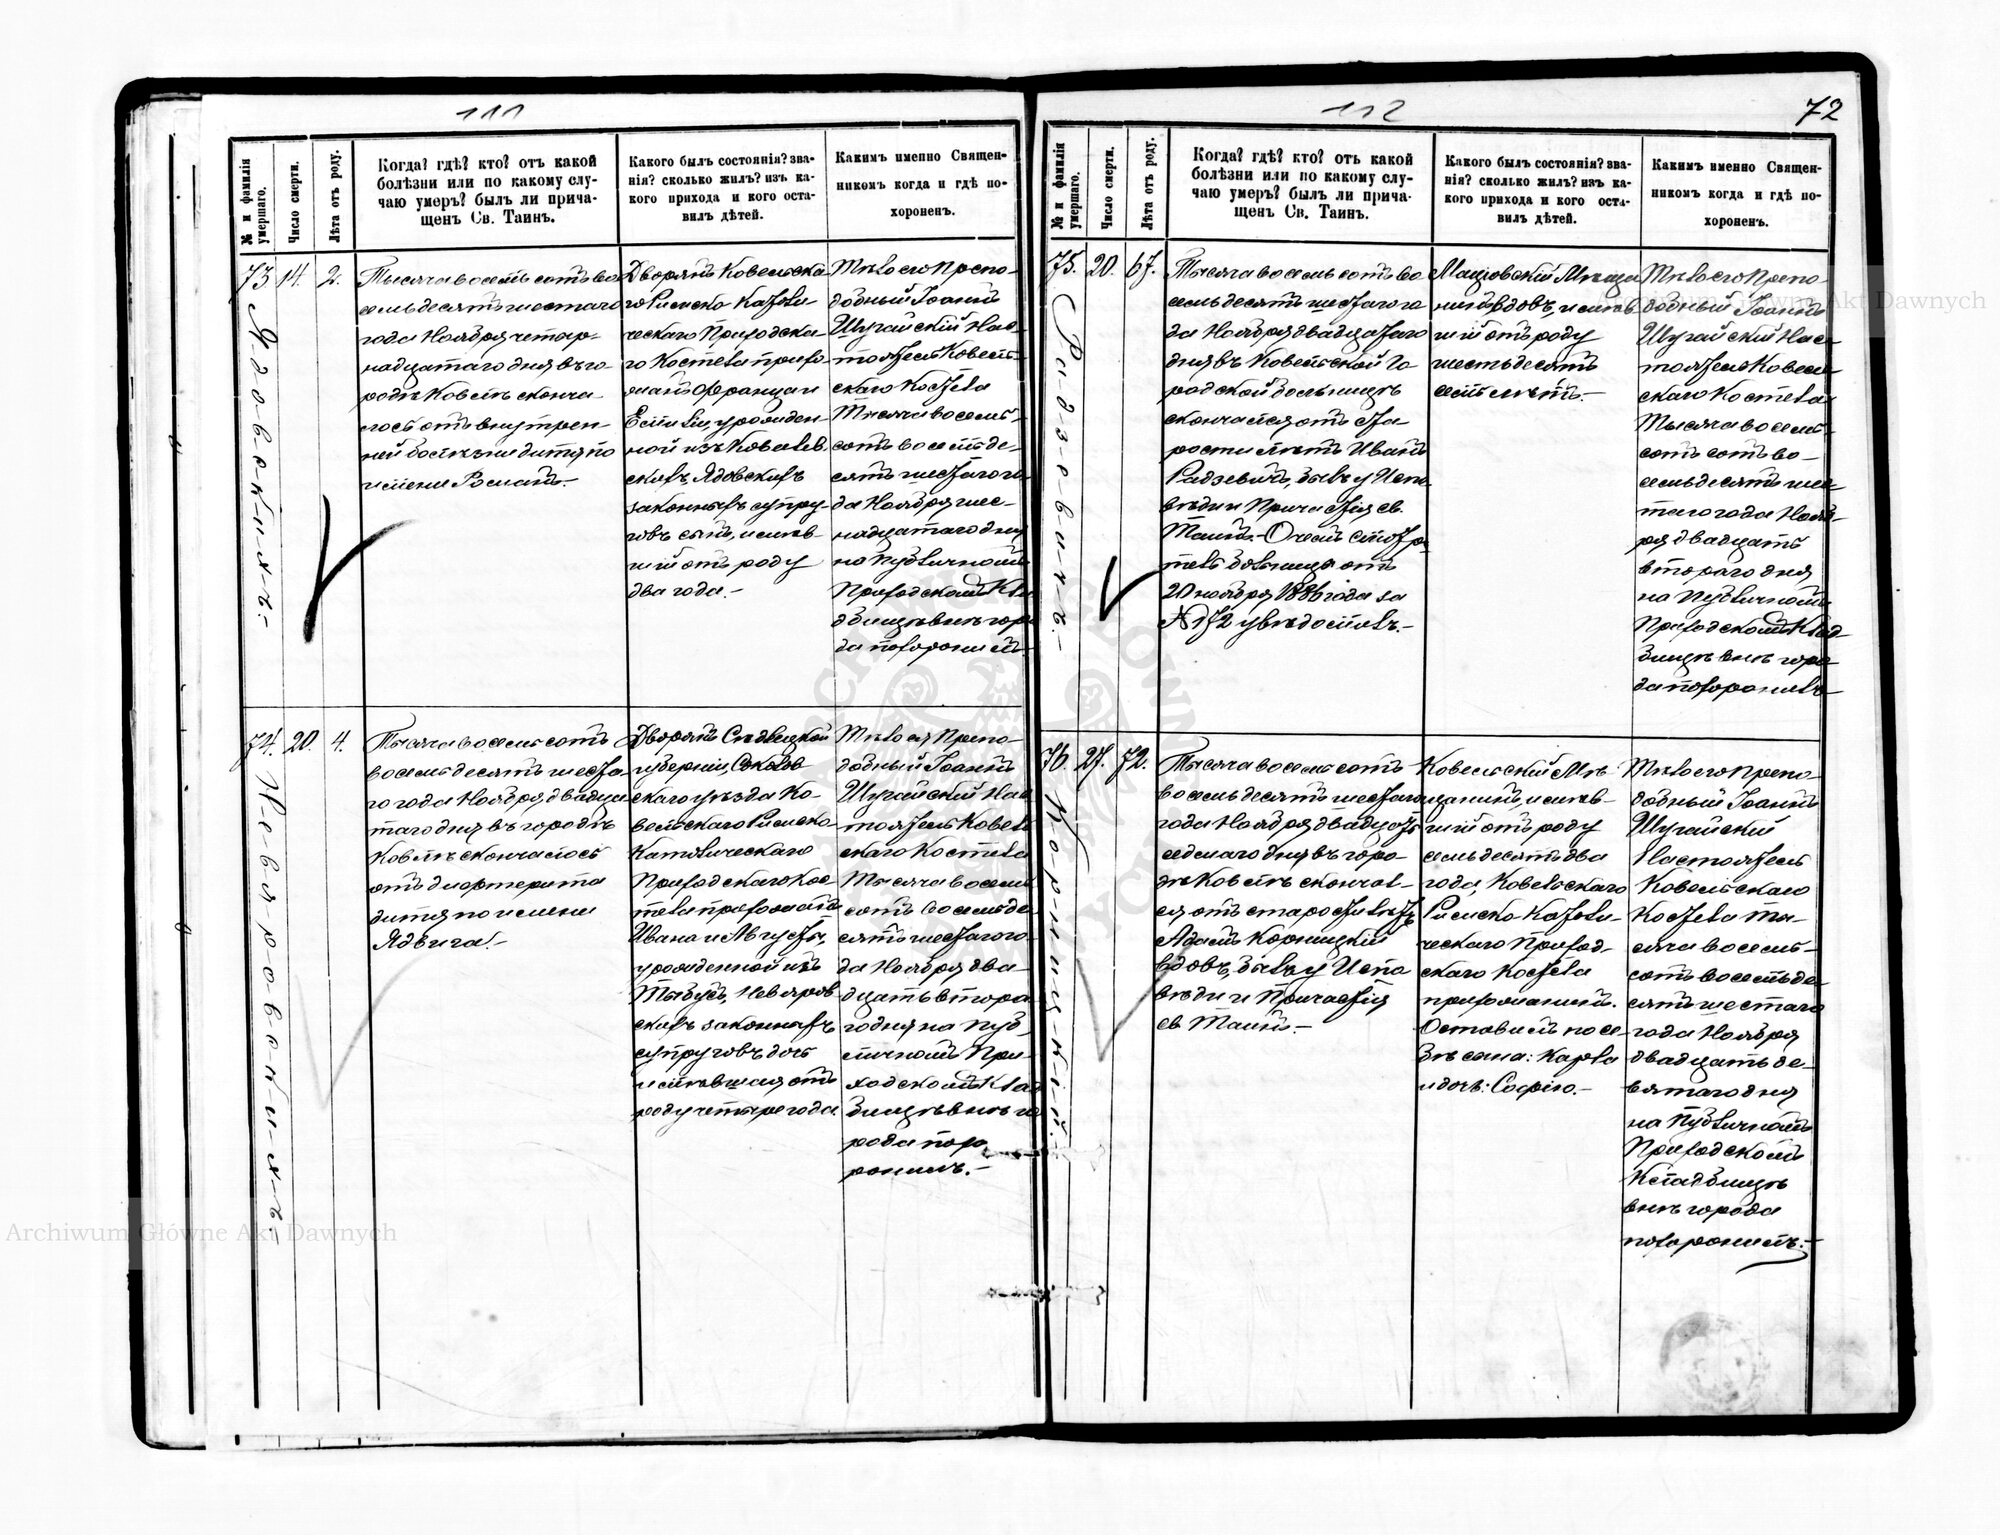 111
№ и фамилія умершаго.
Число смерти.
Лѣта отъ роду.
Когда? гдѣ? кто? отъ какой
болѣзни или по какому слу-
чаю умеръ? былъ ли прича-
щенъ Св. Таинъ.
Какого былъ состоянія? зва-
нія? сколько жилъ? изъ ка-
кого прихода и кого оста-
вилъ дѣтей.
Какимъ именно Священ-
никомъ когда и гдѣ по-
хороненъ.
73
14.
2.
Тысяча восемь сотъ во
семьдесятъ шестаго
года Ноября четыр-
надцатаго дня въ го-
родѣ Ковелѣ сконча-
лось отъ внутрен-
ней болѣзни дитя по
имени Романъ.-
Дворянъ Ковельска
го Римско Католи
ческаго Приходска-
го Костела прихо-
жанъ Франца и
урожден-
ной изъ
скихъ Ядовскихъ
законныхъ супру-
говъ сынъ, имѣв-
шій отъ роду
два года.-
Тѣло его Препо-
добный Іоаннъ
Шугайскій Нас-
тоятель Ковель-
скаго Костела
Тысяча восемь-
сотъ восемьде-
сятъ шестаго го-
да Ноября шес-
надцатаго дня
на Публичномъ
Приходскомъ Кла
дбищѣ внѣ горо
да похоронилъ.
74.
20.
4.
Тысяча восемь сотъ
восемьдесятъ шеста-
го года Ноября двадца
таго дня въ городѣ
Ковелѣ скончалось
отъ дифтерита
дитя по имени
Ядвига.-
Дворянъ Сѣдлецкой
губерніи, Соколов
скаго уѣзда Ко-
вельскаго Римско-
Католическаго
Приходскаго Кос-
тела прихожанъ
Ивана и Августы,
урожденной изъ
Невяров
скихъ законныхъ
супруговъ дочь
имѣвшая отъ
роду четыре года
Тѣло ея Препо-
добный Іоаннъ
Шугайскій Нас
тоятель Ковель
скаго Костела
Тысяча восемь
сотъ восемьде
сятъ шестаго го-
да Ноября два-
дцать втора
го дня на Пуб-
личномъ При-
ходскомъ Клад
бищѣ внѣ го
рода похо
ронилъ.-
112
72
№ и фамилія умершаго.
Число смерти.
Лѣта отъ роду.
Когда? гдѣ? кто? отъ какой
болѣзни или по какому слу-
чаю умеръ? былъ ли прича-
щенъ Св. Таинъ.
Какого былъ состоянія? зва-
нія? сколько жилъ? изъ ка-
кого прихода и кого оста-
вилъ дѣтей.
Какимъ именно Священ-
никомъ когда и гдѣ по-
хороненъ.
75.
20.
67.
Радзевичъ.-
Тысяча восемь сотъ во
семьдесятъ шестаго го
да Ноября двадцатаго
дня въ Ковельской Го
родской Больницѣ
скончался отъ ста
рости лѣтъ Иванъ
Радзевичъ, бывъ у Испо
вѣди и Причастія св.
Таинъ.-
20 ноября 1886 года за
Мацѣовскій Мѣща
нинъ вдовъ, имѣв
шій отъ роду
шестьдесятъ
семь лѣтъ.-
Тѣло его Препо-
добный Іоаннъ
Шугайскій Нас-
тоятель Ковель-
скаго Костела
Тысяча восемь-
сотъ сотъ во-
семьдесятъ шес-
таго года Нояб-
ря двадцать
втораго дня
на Публичномъ
Приходскомъ Клад
бищѣ внѣ горо
да похоронилъ
76.
27.
72.
Корницкій.
Тысяча восемь сотъ
восемьдесятъ шестаго
года Ноября двадцать
седмаго дня въ горо-
дѣ Ковелѣ скончал-
ся отъ старости лѣтъ
Адамъ Корницкій
вдовъ, бывъ у Испо
вѣди и Причастія
св Таинъ.-
Ковельскій Мѣ
щанинъ, имѣв-
шій отъ роду
семьдесятъ два
года, Ковельскаго
Римско-Католи-
ческаго Приход-
скаго Костела
прихожанинъ.
Оставилъ по се-
бѣ сына: Карла
и дочь: Софію.-
Тѣло его Препо-
добный Іоаннъ
Шугайскій
Настоятель
Ковельскаго
Костела Ты-
сяча восемь-
сотъ восемьде-
сятъ шестаго
года Ноября
двадцать де-
вятаго дня
на Публичномъ
Приходскомъ
Кладбищѣ
внѣ города
похоронилъ.-
Archiwum Główne Akt Dawnych
Archiwum Główne Akt Dawnych